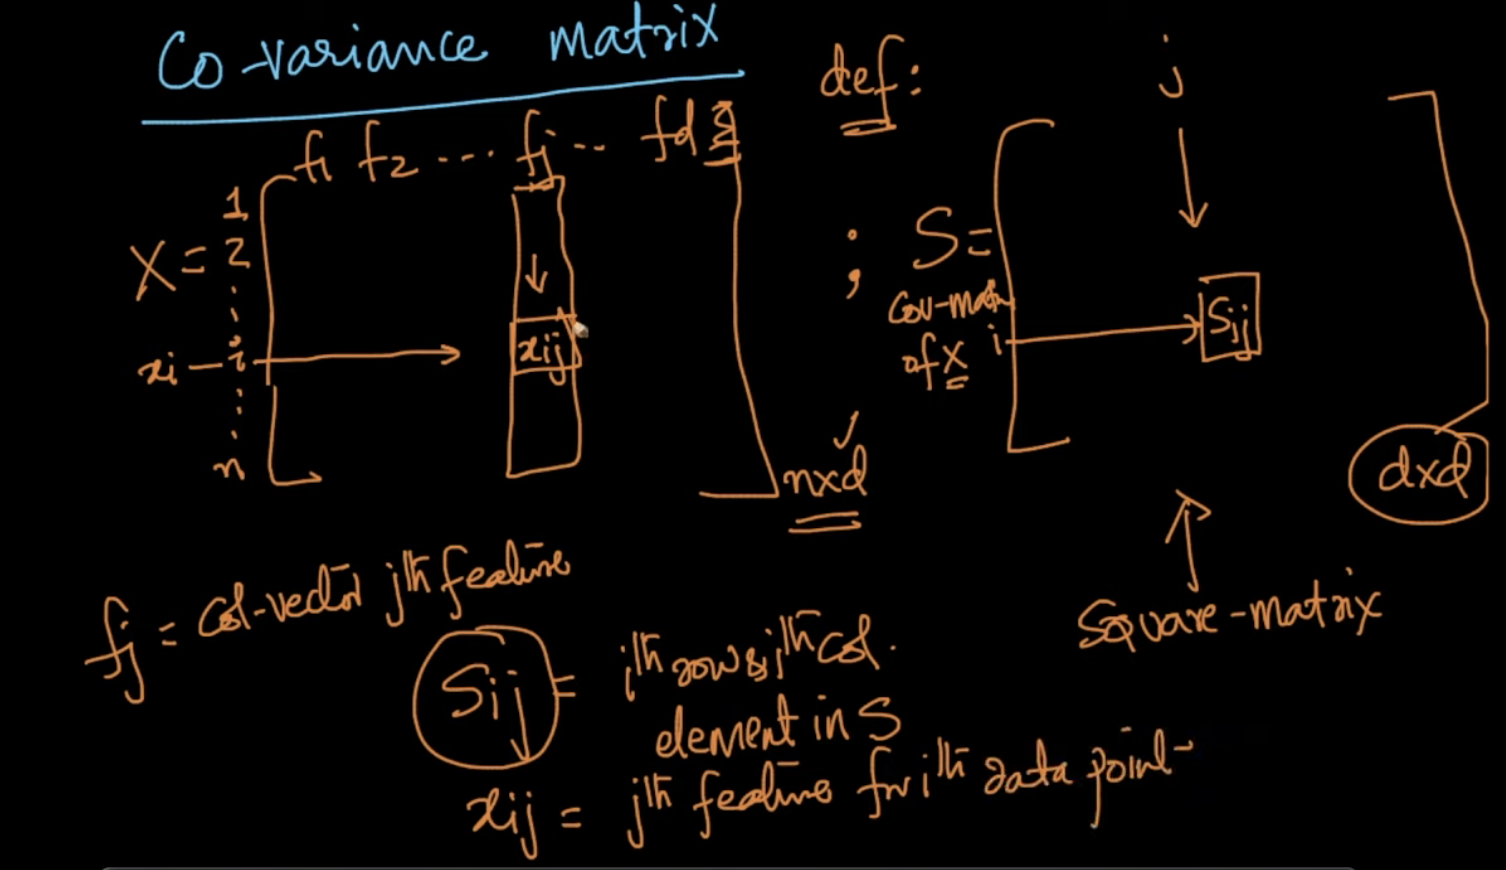 Co-variance matrix
def:
j
f1 f2 ... fj .. fd
1
X = 2
xi – i
xij
n
nxd
; S =
cov-mat
of X
i
Sij
dxd
Square-matrix
fj = col-vector jth feature
Sij = ith row & jth col.
element in S
xij = jth feature for ith data point